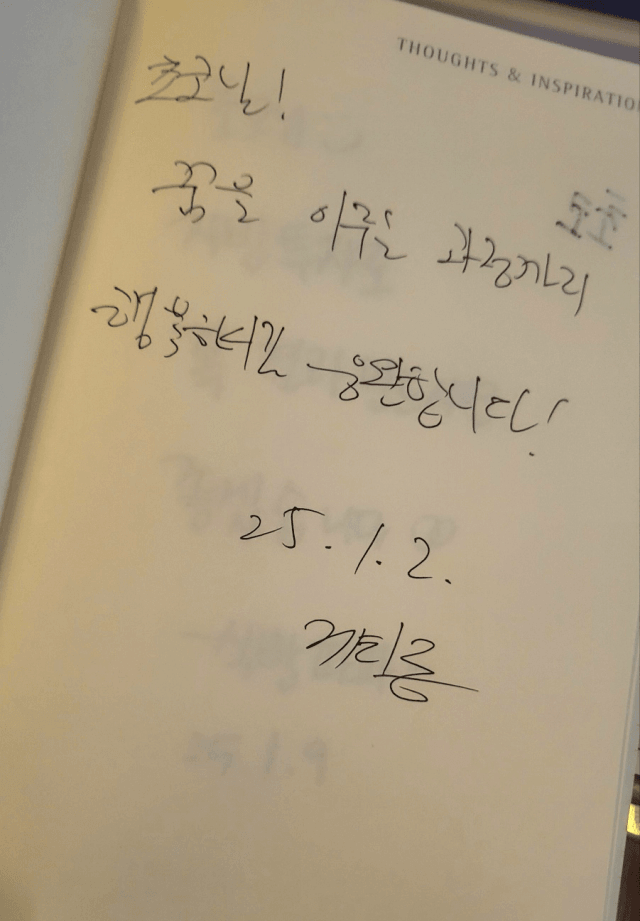 THOUGHTS & INSPIRATIO
초코님!
꿈을 이루는 과정까지
행복하시길 응원합니다!
25.1.2.